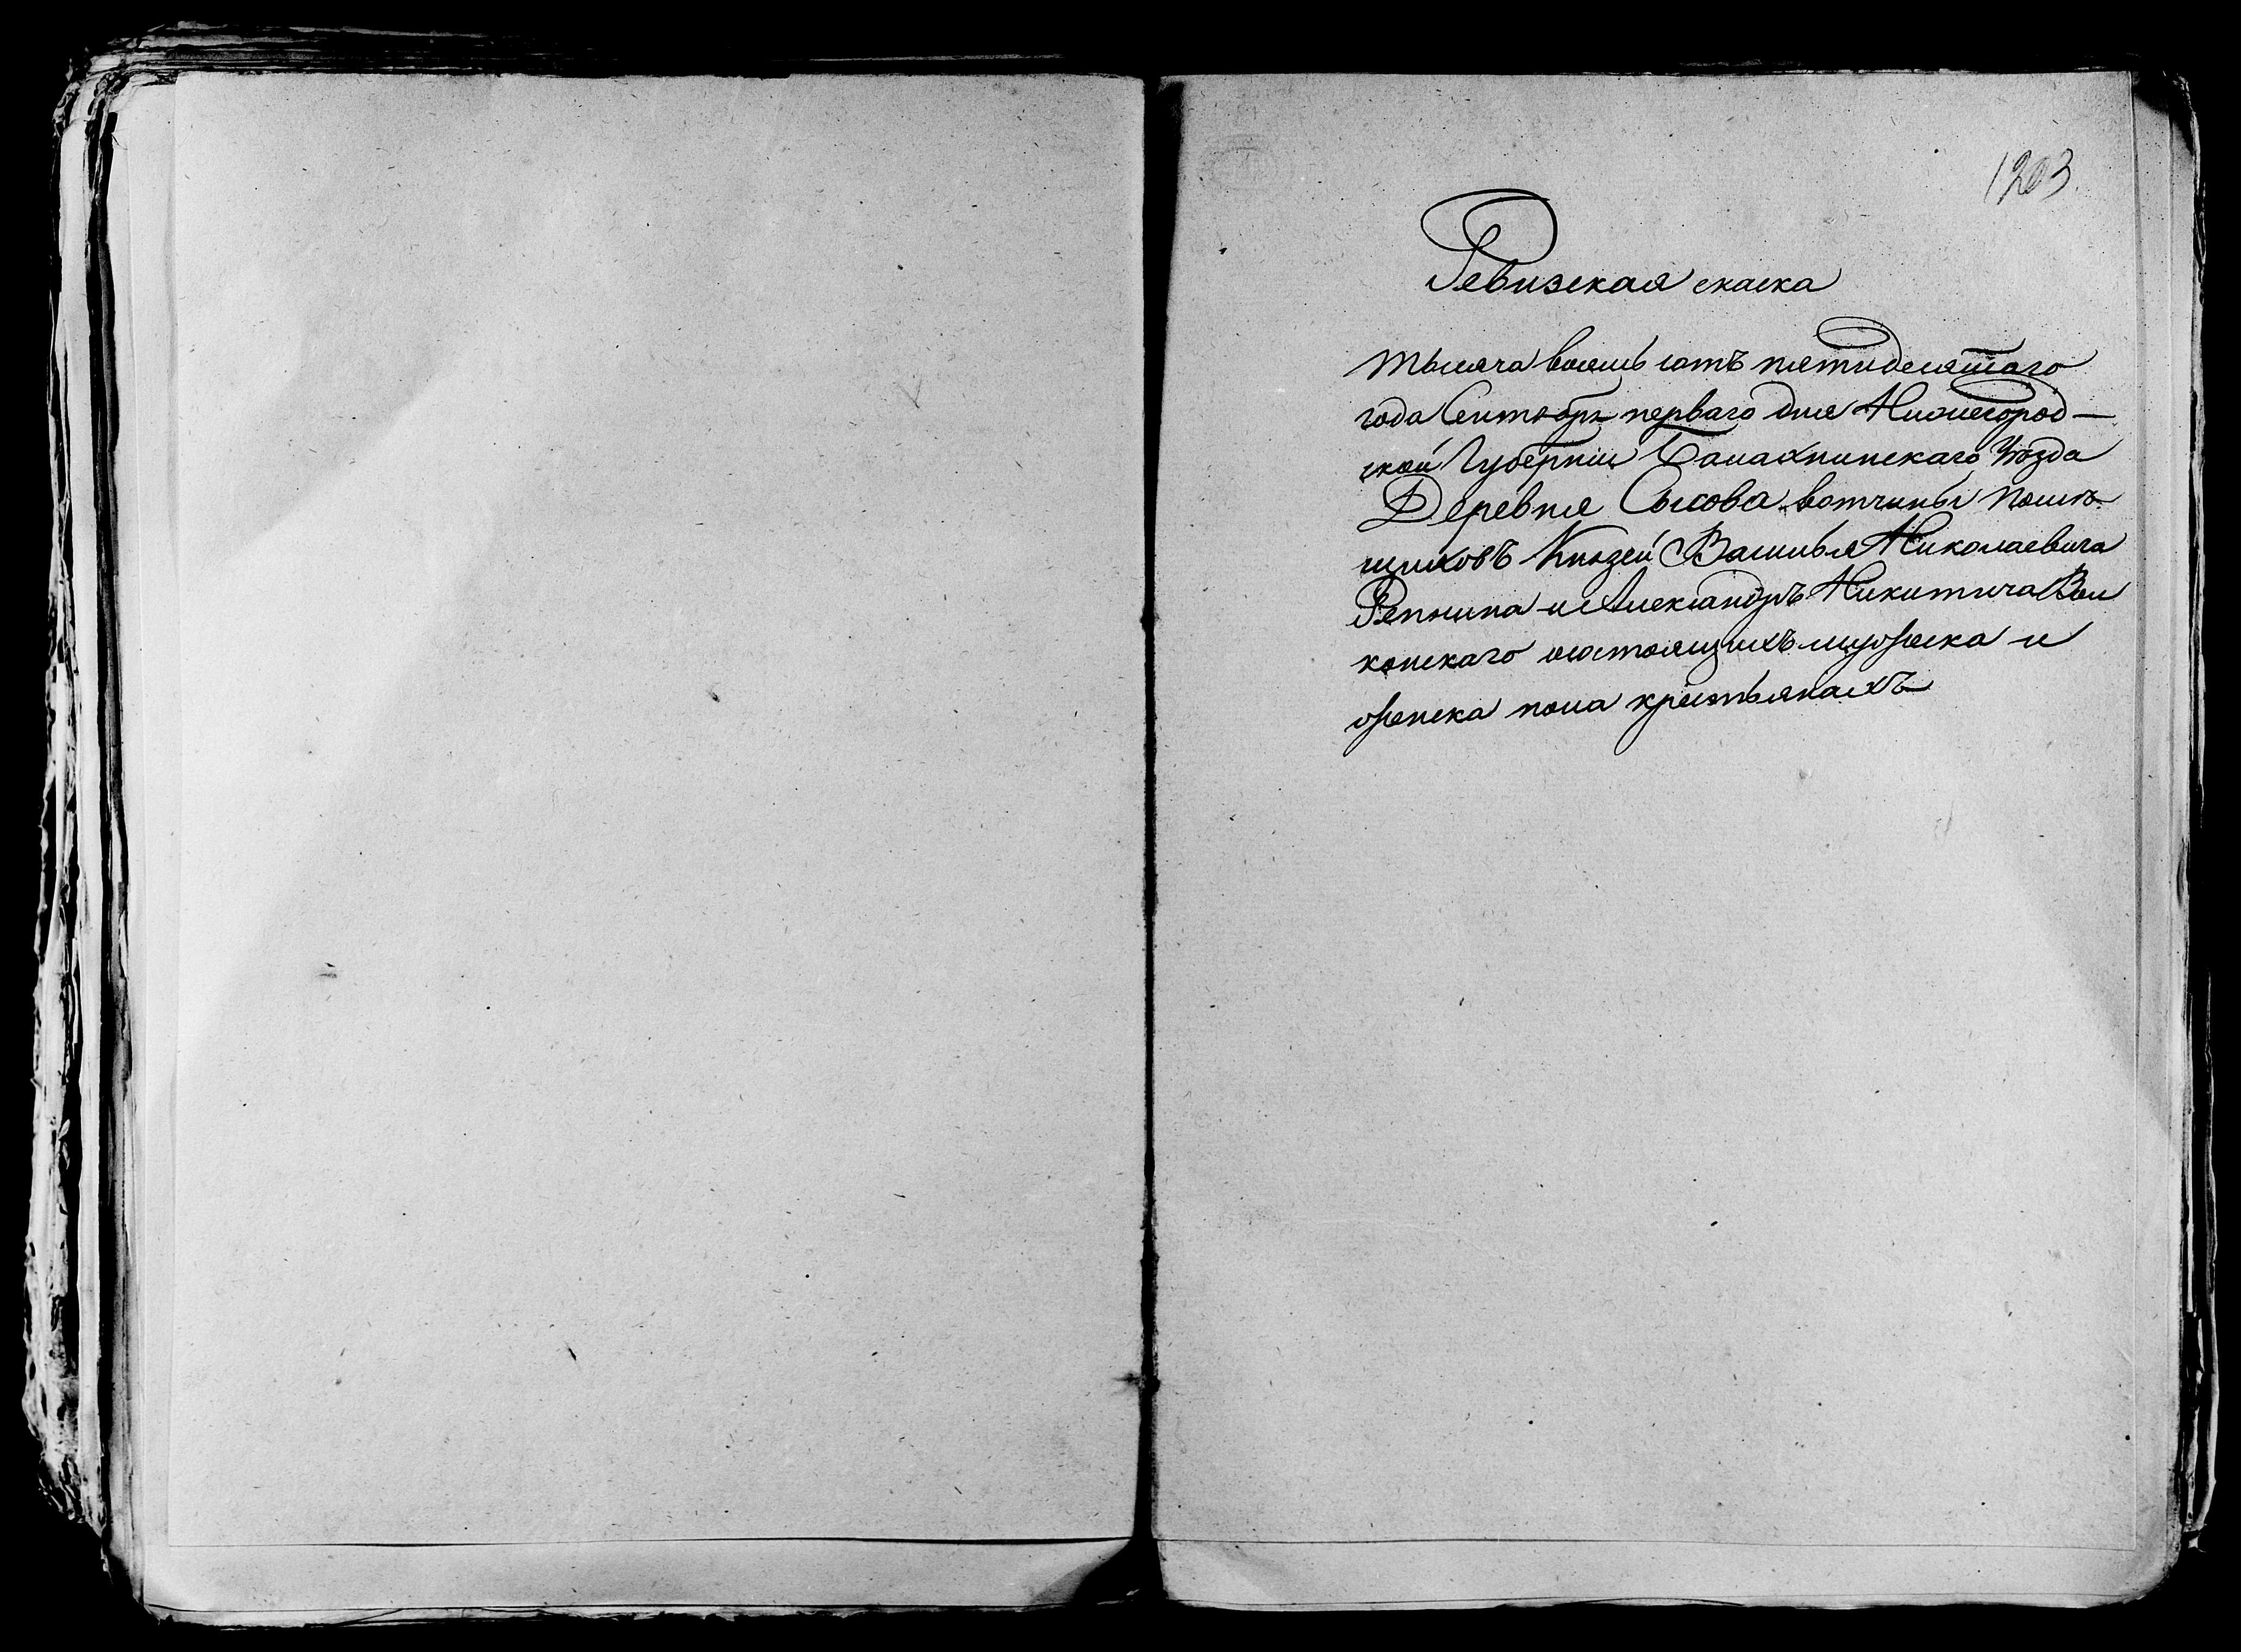 1203
Ревизская скаска
тысяча восемь сотъ пятидесятаго
года Сентября перваго дня Нижегород-
ской Губернии Балахнинскаго Уѣзда
Деревня Сысова вотчины помѣ-
щиковъ Князей Василья Николаевича
Репнина и Александръ Никитича Вол
конскаго состоящихъ мужеска и
женска пола крестьянахъ